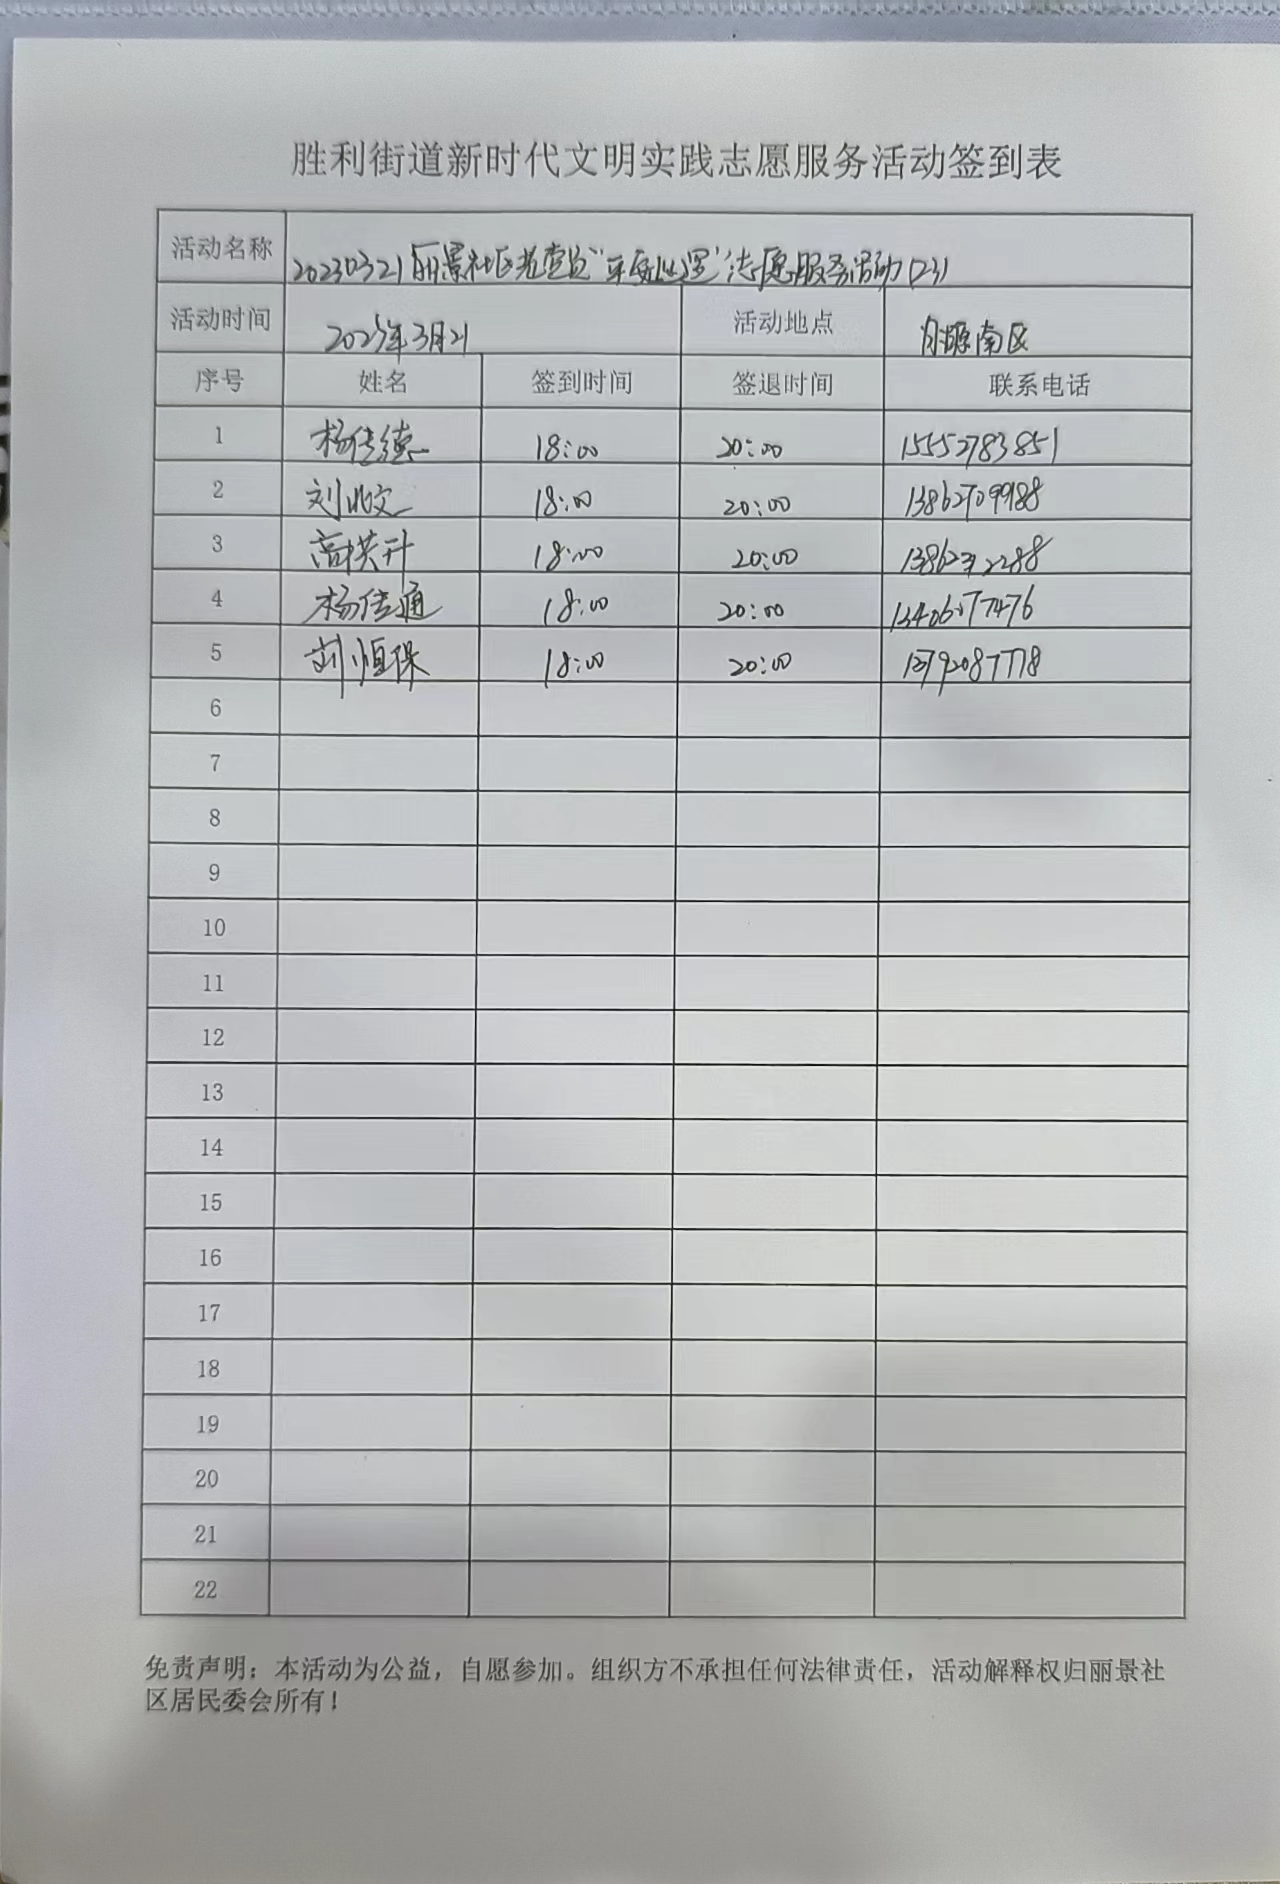 胜利街道新时代文明实践志愿服务活动签到表
活动名称 20230321丽景社区党员“平安巡逻”志愿服务活动(23)
活动时间 2023年3月21 活动地点 南区
序号 姓名 签到时间 签退时间 联系电话
1 杨传德 18:00 20:00 15552783851
2 刘 文 18:00 20:00 13862709988
3 高洪升 18:00 20:00
4 杨传通 18:00 20:00 13406077476
5 刘恒保 18:00 20:00 13792087778
6
7
8
9
10
11
12
13
14
15
16
17
18
19
20
21
22
免责声明：本活动为公益，自愿参加。组织方不承担任何法律责任，活动解释权归丽景社
区居民委会所有！